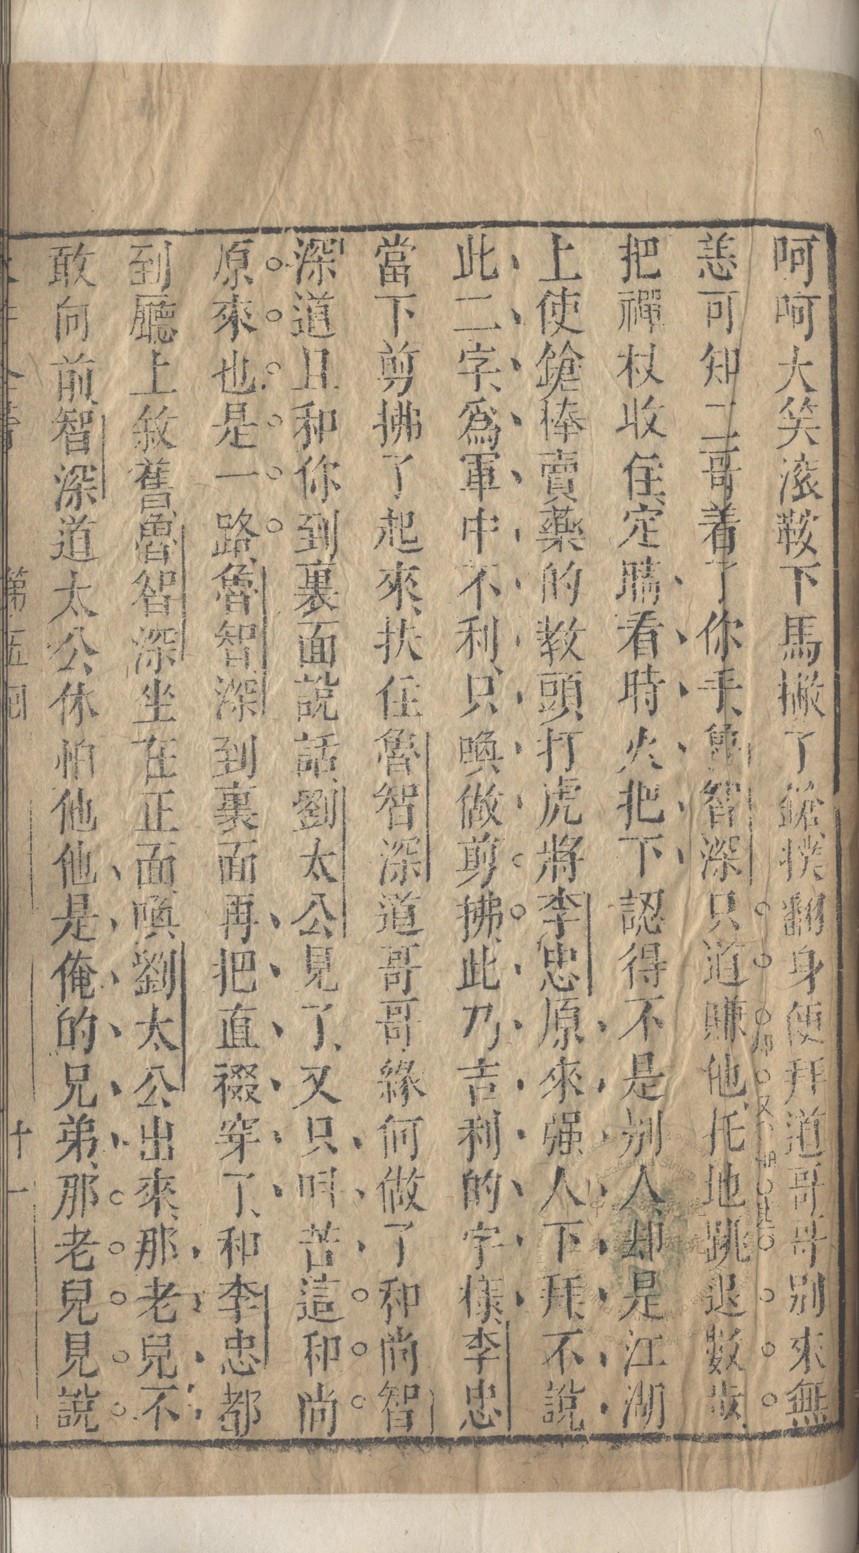 呵呵大笑滚鞍下馬撇了鎗撲翻身便拜道哥哥别來無
恙可知二哥着了你手魯智深只道賺他托地跳退數步
把禪杖收住定睛看時火把下認得不是别人却是江湖
上使鎗棒賣藥的教頭打虎將李忠原來强人下拜不說
此二字爲軍中不利只喚做剪拂此乃吉利的字樣李忠
當下剪拂了起來扶住魯智深道哥哥緣何做了和尚智
深道且和你到裏面說話劉太公見了又只叫苦這和尚
原來也是一路魯智深到裏面再把直裰穿了和李忠都
到廳上敘舊魯智深坐在正面喚劉太公出來那老兒不
敢向前智深道太公休怕他他是俺的兄弟那老兒見說
第五回
十一